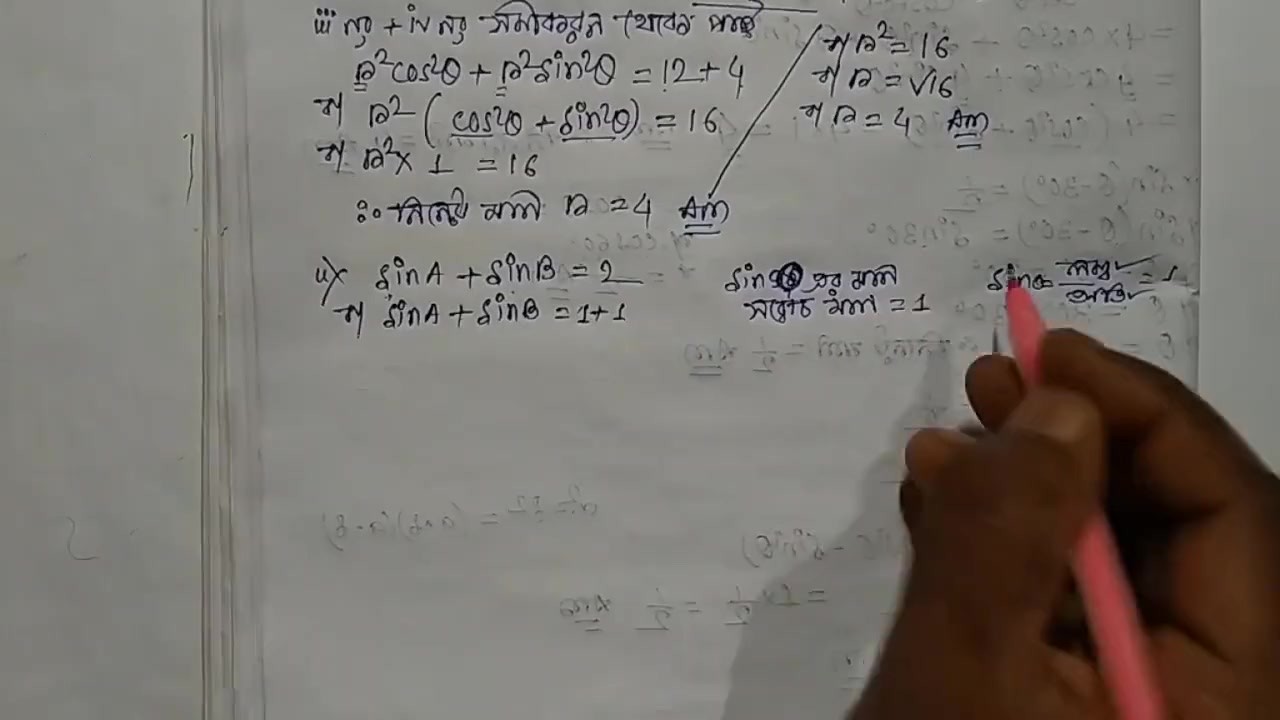 iii নং + iv নং সমীকরণ থেকে পাই
r²cos²θ + r²sin²θ = 12 + 4
বা r² (cos²θ + sin²θ) = 16
বা r² × 1 = 16
∴ নির্ণেয় মান r = 4 Ans
বা r² = 16
বা r = √16
বা r = 4 Ans
sinA + sinB = 2
বা sinA + sinB = 1 + 1
sinθ এর মান
সর্বোচ্চ মান = 1
sinθ = লম্ব/অতি = 1